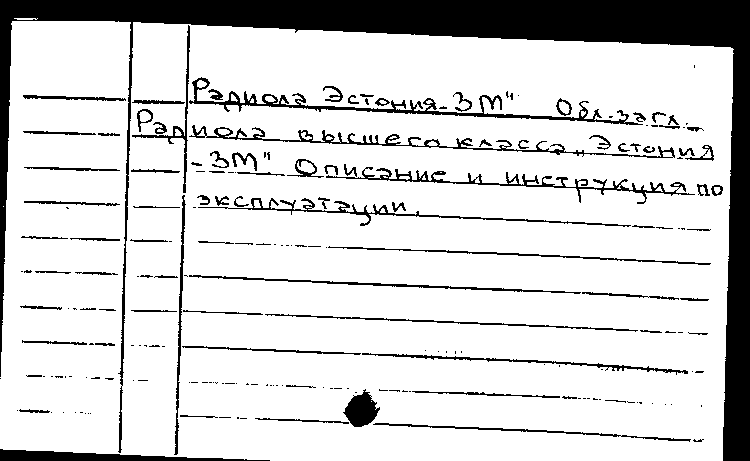 Радиола „Эстония-3М" Обл.загл.
Радиола высшего класса „Эстония
-3М" Описание и инструкция по
эксплуатации.